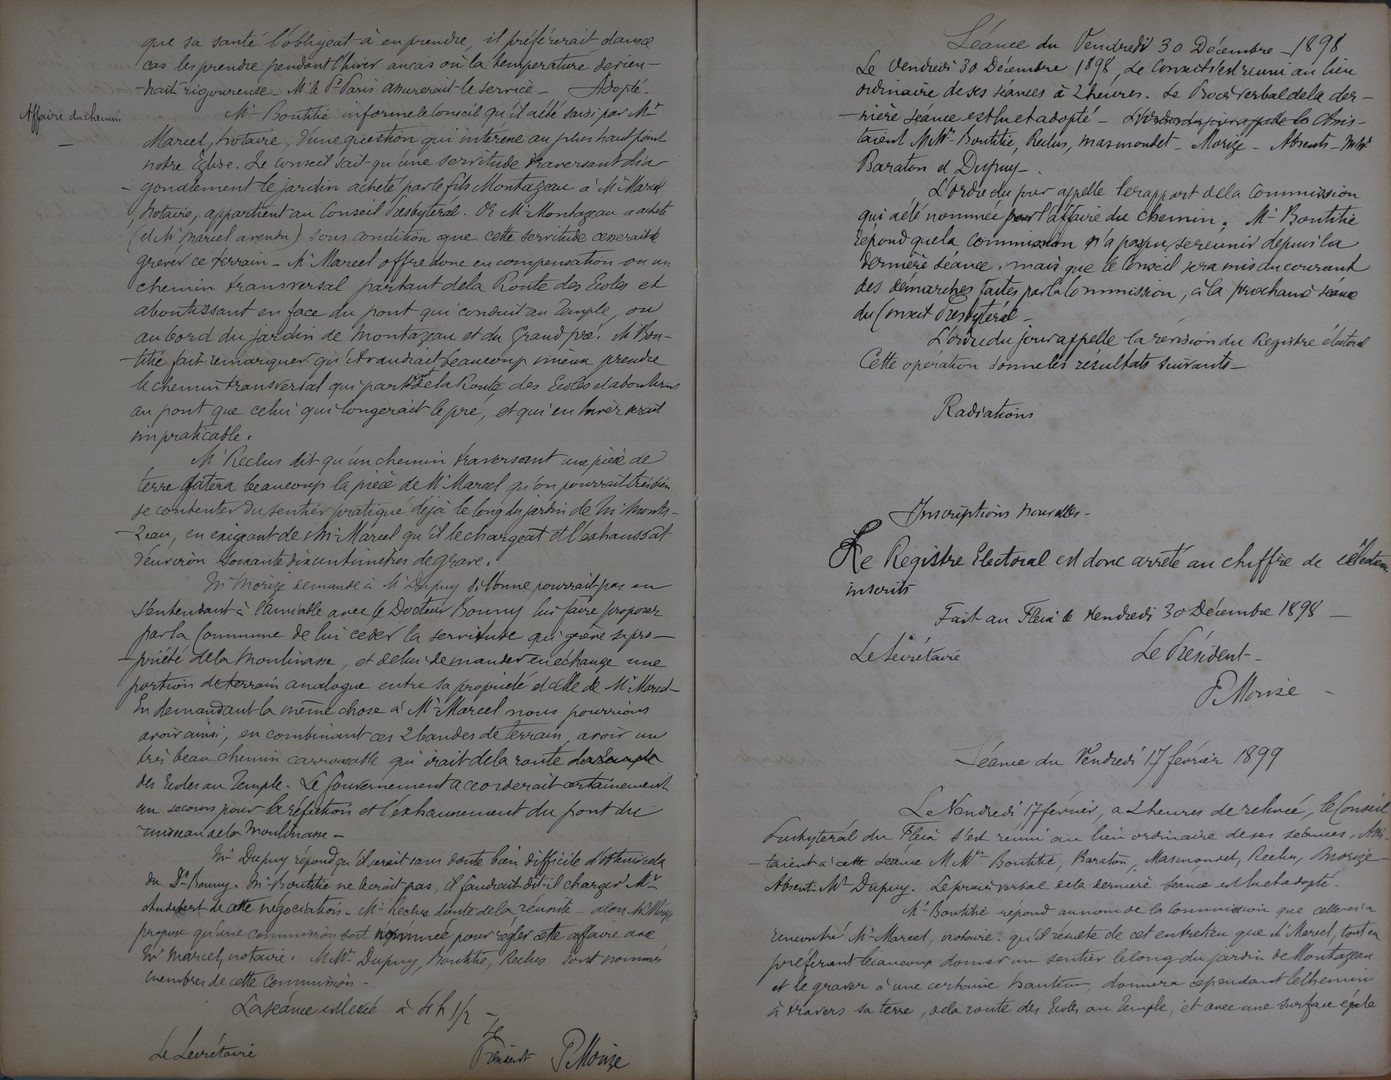 que sa santé l'obligeat à en prendre, il préférerait dans ce
cas les prendre pendant l'hiver au cas où la température devien-
-drait rigoureuse. Mr le Pr Paris assurerait le service. Adopté.
Affaire du chemin
Mr Bontitié informe le Conseil qu'il a été saisi par Mr
Marcel, notaire, d'une question qui intéresse au plus haut point
notre Eglise. Le conseil sait qu'une servitude traversant dia-
-gonalement le jardin acheté par le fils Montazeau à Mr Marcel
notaire, appartient au Conseil Presbytéral. Or Mr Montazeau a acheté
(et Mr Marcel a vendu) sous condition que cette servitude cesserait de
grever ce terrain. Mr Marcel offre donc en compensation ou un
chemin transversal partant de la Route des Ecoles et
aboutissant en face du pont qui conduit au Temple, ou
au bord du jardin de Montazeau et du Grand pré. Mr Bon-
-titié fait remarquer qu'il vaudrait beaucoup mieux prendre
le chemin transversal qui part de la Route des Ecoles et aboutirait
au pont que celui qui longerait le pré, et qui en hiver serait
impraticable.
Mr Reclus dit qu'un chemin traversant une pièce de
terre gâtera beaucoup la pièce de Mr Marcel qu'on pourrait très bien
se contenter du sentier pratiqué déjà le long du jardin de Mr Monta-
-zeau, en exigeant de Mr Marcel qu'il le chargeât et l'exhaussât
d'environ soixante dix centimètres de grave.
Mr Morize demande à Mr Dupuy si l'on ne pourrait pas en
s'entendant à l'amiable avec le Docteur Bonny lui faire proposer
par la Commune de lui céder la servitude qui grève sa pro-
-priété de la Moulinasse, et de lui demander en échange une
portion de terrain analogue entre sa propriété et celle de Mr Marcel-
En demandant la même chose à Mr Marcel nous pourrions
avoir ainsi, en combinant ces 2 bandes de terrain, avoir un
très beau chemin carrossable qui irait de la route
des Ecoles au Temple. Le Gouvernement accorderait certainement
un secours pour la réfection et l'exhaussement du pont du
ruisseau de la Moulinasse -
Mr Dupuy répond qu'il serait sans doute bien difficile d'obtenir cela
du Dr Bonny. Mr Bontitié ne le croit pas, il faudrait dit-il charger Mr
de cette négociation. Mr Reclus doute de la réussite - alors Mr Morize
propose qu'une commission soit nommée pour régler cette affaire avec
Mr Marcel, notaire. M Mrs Dupuy, Bontitié, Reclus sont nommés
membres de cette Commission.
La séance est levée à 4 h 1/2 -
Le Secrétaire
Le Président P. Morize
Séance du Vendredi 30 Décembre - 1898
Le Vendredi 30 Décembre 1898, le Conseil s'est réuni au lieu
ordinaire de ses séances à 2 heures. Le Procès verbal de la der-
-nière séance est lu et adopté - L'ordre du jour appelle la Assis-
taient M Mrs Bontitié, Reclus, Masmondet - Morize - Absents - M Mrs
Baraton et Dupuy -
L'ordre du jour appelle le rapport de la Commission
qui a été nommée pour l'affaire du chemin. Mr Bontitié
répond que la Commission n'a pas pu se réunir depuis la
dernière séance, mais que le Conseil sera mis du courant
des démarches faites par la Commission, à la prochaine séance
du Conseil Presbytéral -
L'ordre du jour appelle la révision du Registre électoral
Cette opération donne les résultats suivants -
Radiations
Inscriptions nouvelles -
Le Registre Electoral est donc arrêté au chiffre de
inscrits
Fait au Fleix le Vendredi 30 Décembre 1898 -
Le Secrétaire
Le Président -
P. Morize -
Séance du Vendredi 17 février 1899
Le Vendredi 17 février, à 2 heures de relevée, le Conseil
Presbytéral du Fleix s'est réuni au lieu ordinaire de ses séances, Assis-
-taient à cette séance M Mrs Bontitié, Baraton, Masmondet, Reclus, Morize -
Absent Mr Dupuy. Le procès verbal de la dernière séance est lu et adopté.
Mr Bontitié répond au nom de la Commission que celle-ci a
rencontré Mr Marcel, notaire. qu'il résulte de cet entretien que Mr Marcel, tout en
préférant beaucoup donner un sentier le long du jardin de Montazeau
et le graver à une certaine hauteur, donnera cependant le chemin
à travers sa terre, de la route des Ecoles au Temple, et avec une surface égale